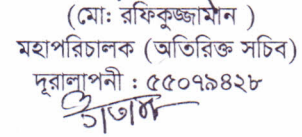 (মো: রফিকুজ্জামান )
মহাপরিচালক (অতিরিক্ত সচিব)
দূরালাপনী : ৫৫০৭৯৪২৮